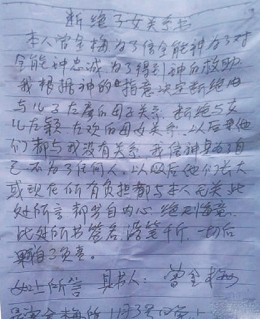 断绝子女关系书
本人曾金梅为了信全能神为了对
全能神忠诚为了得到神的救助
我根据神的旨意决定断绝我
与儿子左 的母子关系 断绝与女
儿左颖左 的母女关系 以后和他
们都与我没有关系 我信神是为了自
己 不为了任何人 以及后他们长大
或现在所有负担都与本人无关 此
处所言都发自内心 绝不后悔
此处所书签名 落笔 一切后
果自己负责
如上所言 具书人：曾金梅